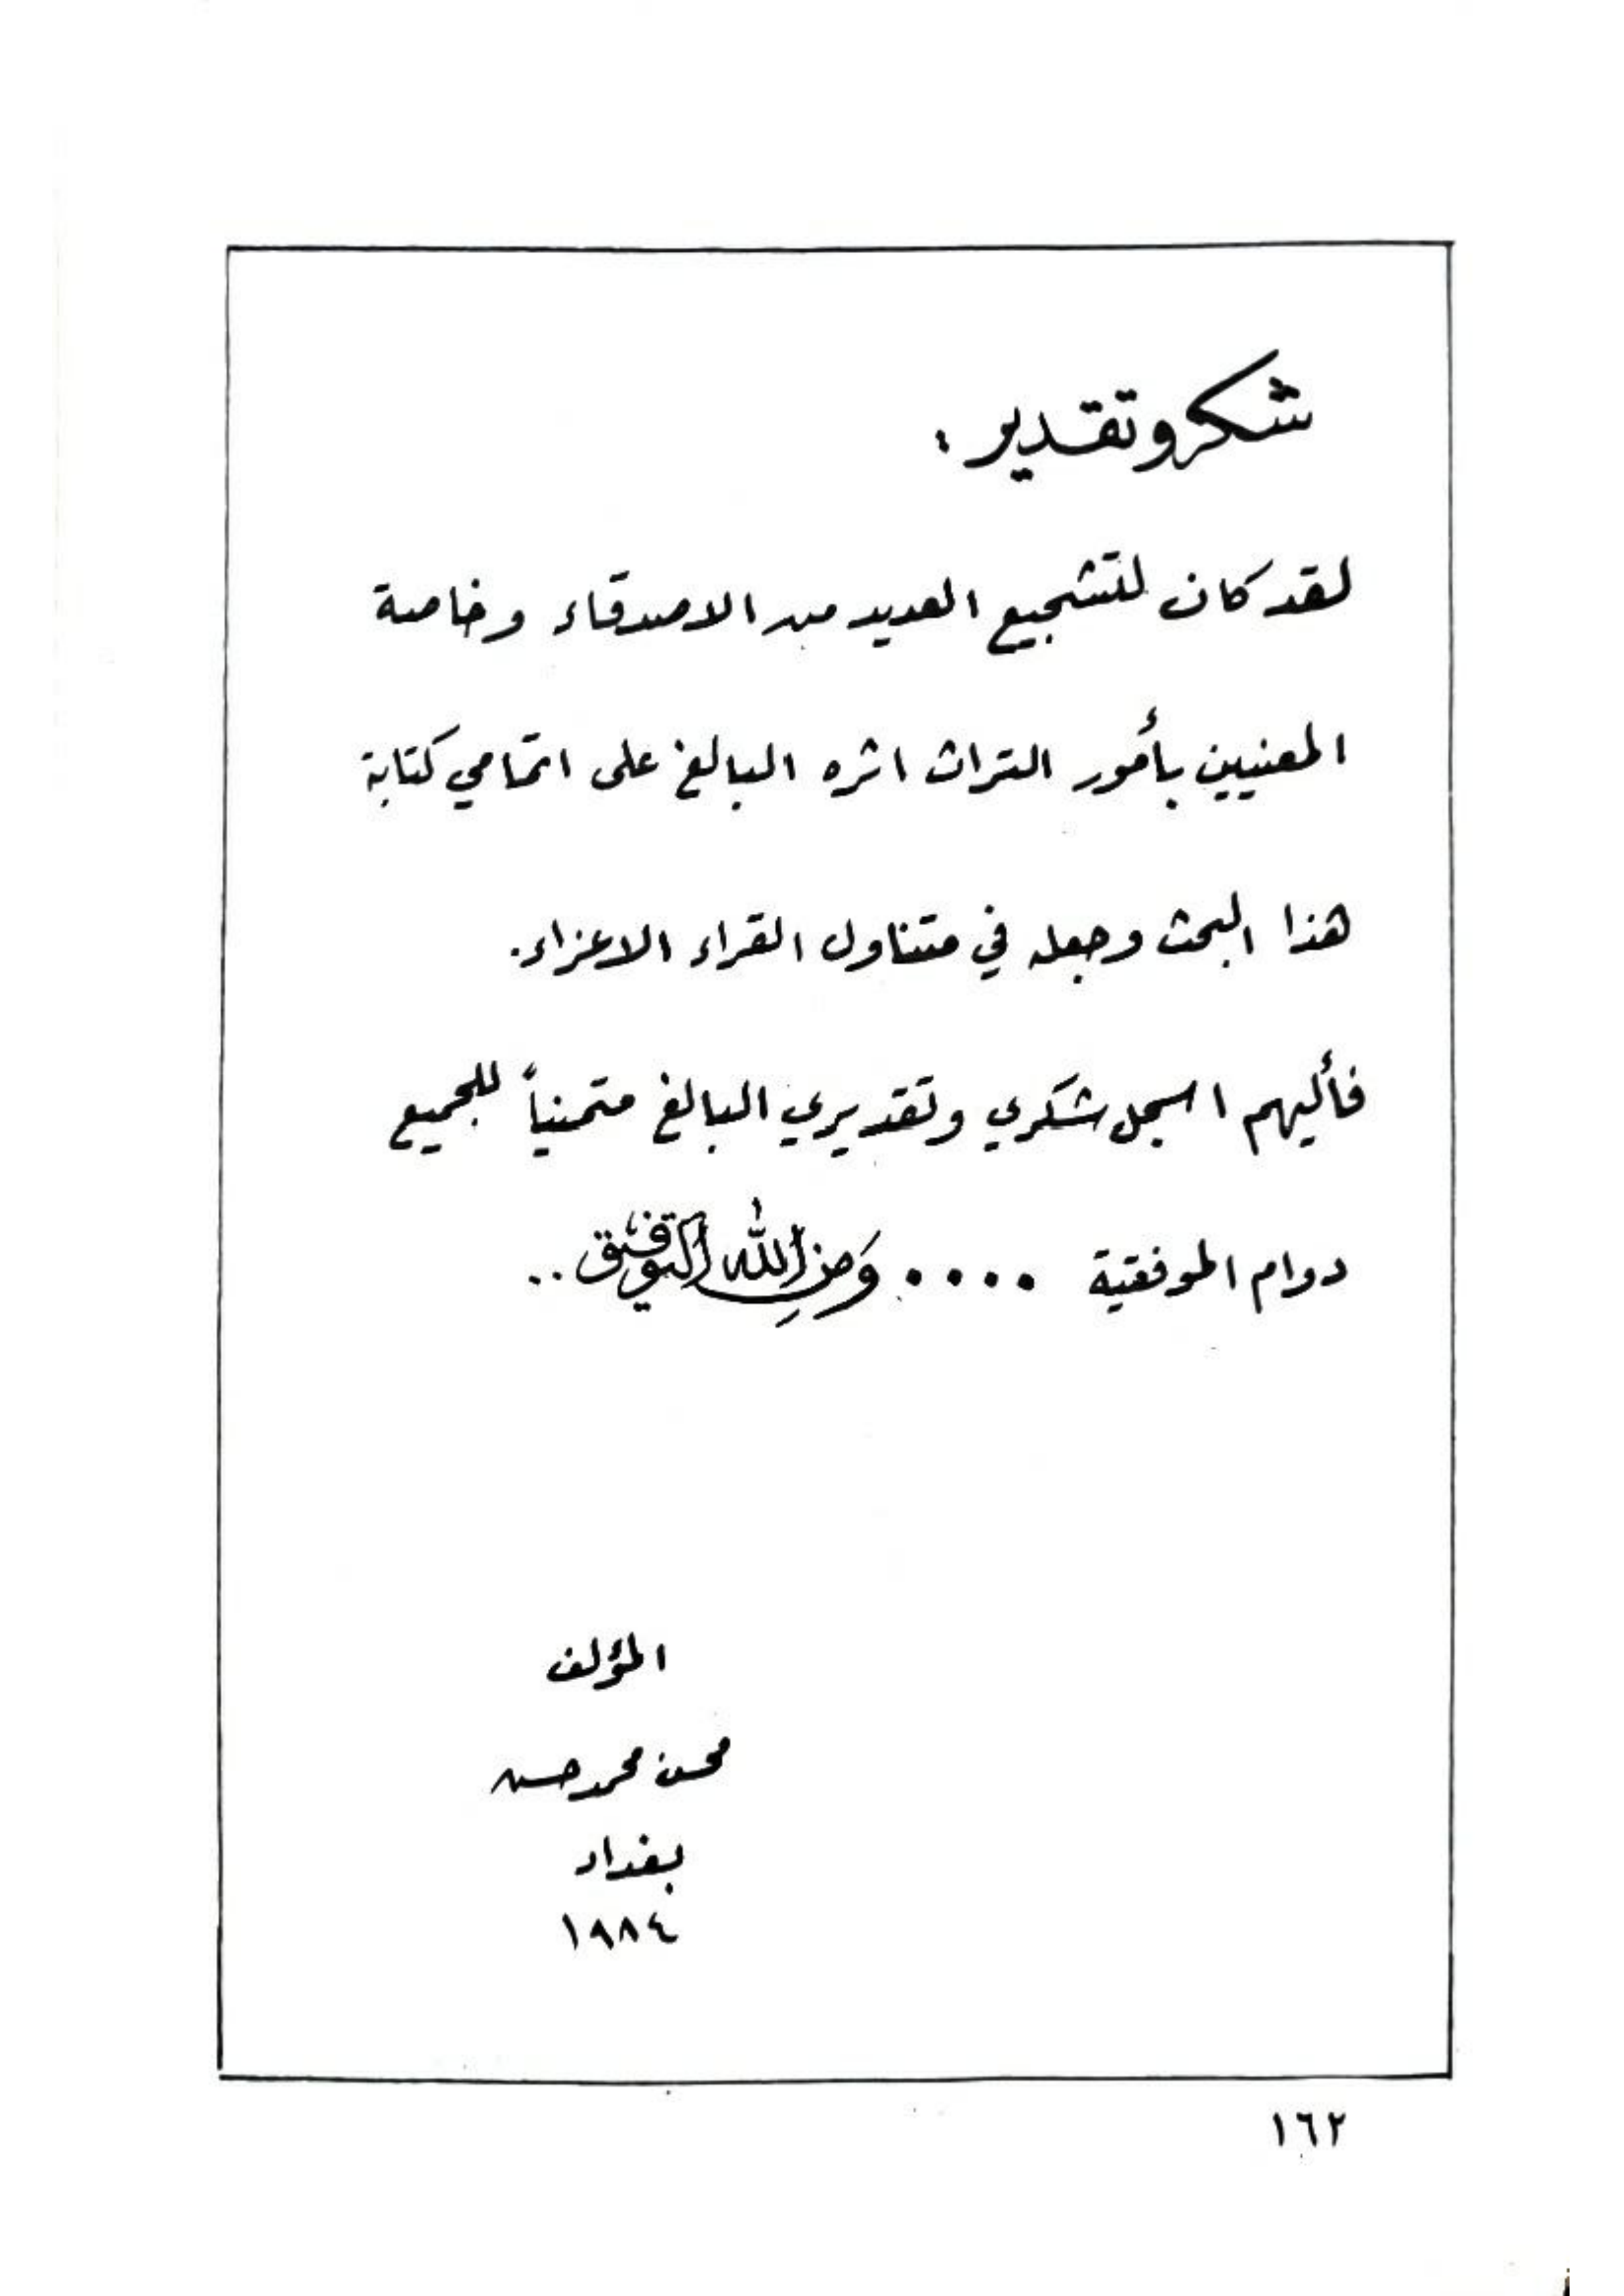 شكر وتقدير :
لقد كان لتشجيع العديد من الاصدقاء وخاصة
المعنيين بأمور التراث اثره البالغ على اتمامي كتابة
هذا البحث وجعله في متناول القراء الاعزاء.
فأليهم اسجل شكري وتقديري البالغ متمنياً للجميع
دوام الموفقية .... وَمن اللهِ التوفيق ..
المؤلف
محسن محمد حسن
بغداد
١٩٨٤
١٦٢